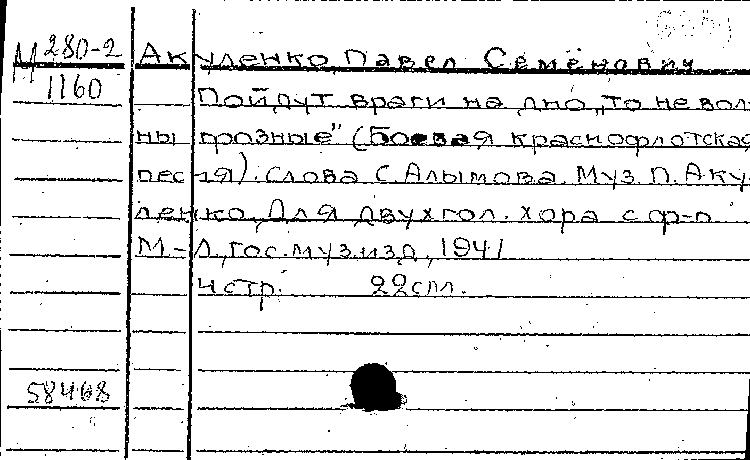 М 280-2
1160
Акуленко, Павел Семёнович
Пойдут враги на дно, то не вол-
ны грозные" (Боевая краснофлотская
песня). Слова С. Алымова. Муз. П. Аку-
ленко, Для двухгол. хора с ф-п.
М-Л, гос. муз. изд, 1941
4 стр. 22 см.
58468